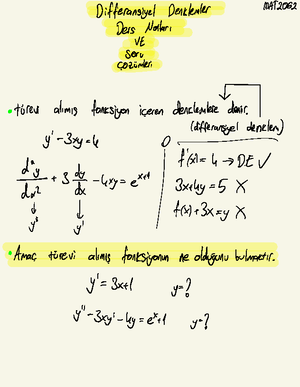 Differansiyel Denklemler
MAT2062
Ders Notları
VE
Soru
Çözümleri
• türevi alınmış fonksiyon içeren denklemlere denir.
(differansiyel denklem)
y' - 3xy = 4
d²y/dx² + 3 dy/dx - 4xy = eˣ⁺¹
y'' y'
f'(x) = 4 → DE ✓
3x + 4y = 5 X
f(x) + 3x = y X
• Amaç türevi alınmış fonksiyonun ne olduğunu bulmaktır.
y' = 3x+1 y=?
y'' - 3xy' - 4y = eˣ+1 y=?